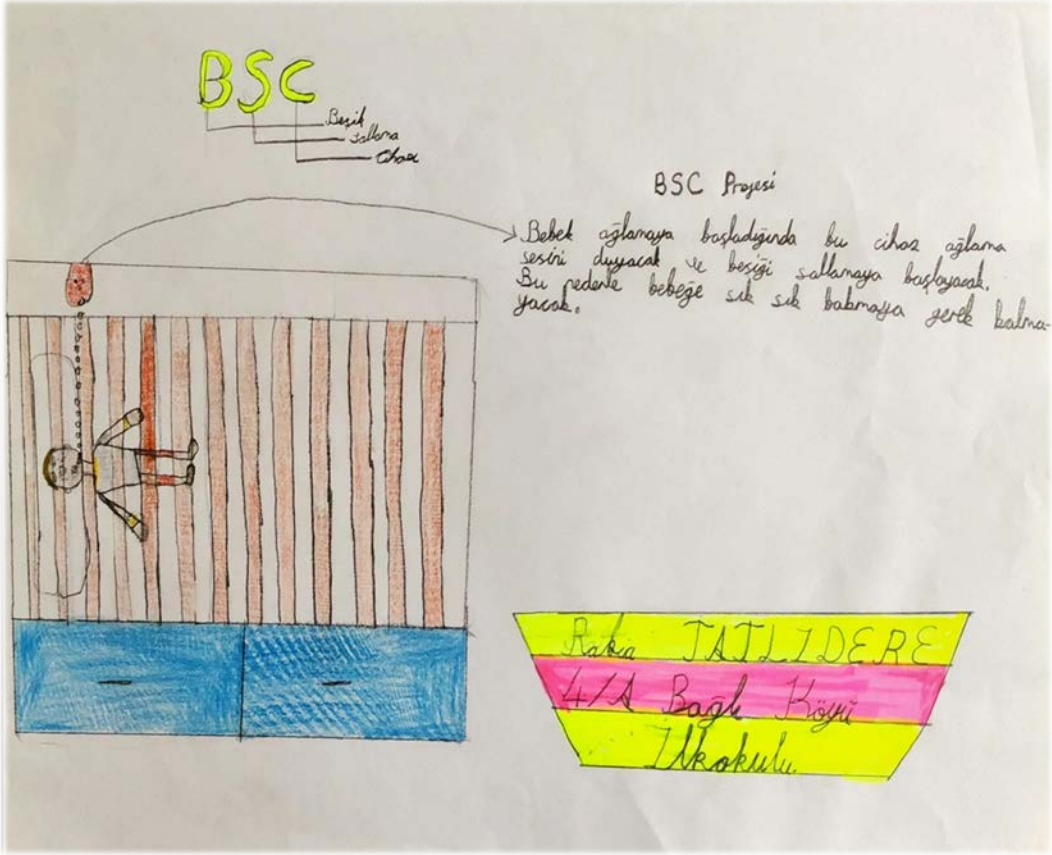 BSC
Beşik
Sallama
Cihazı
BSC Projesi
Bebek ağlamaya başladığında bu cihaz ağlama
sesini duyacak ve beşiği sallamaya başlayacak.
Bu nedenle bebeğe sık sık bakmaya gerek kalma-
yacak.
Rabia TATLIDERE
4/A Bağlı Köyü
İlkokulu